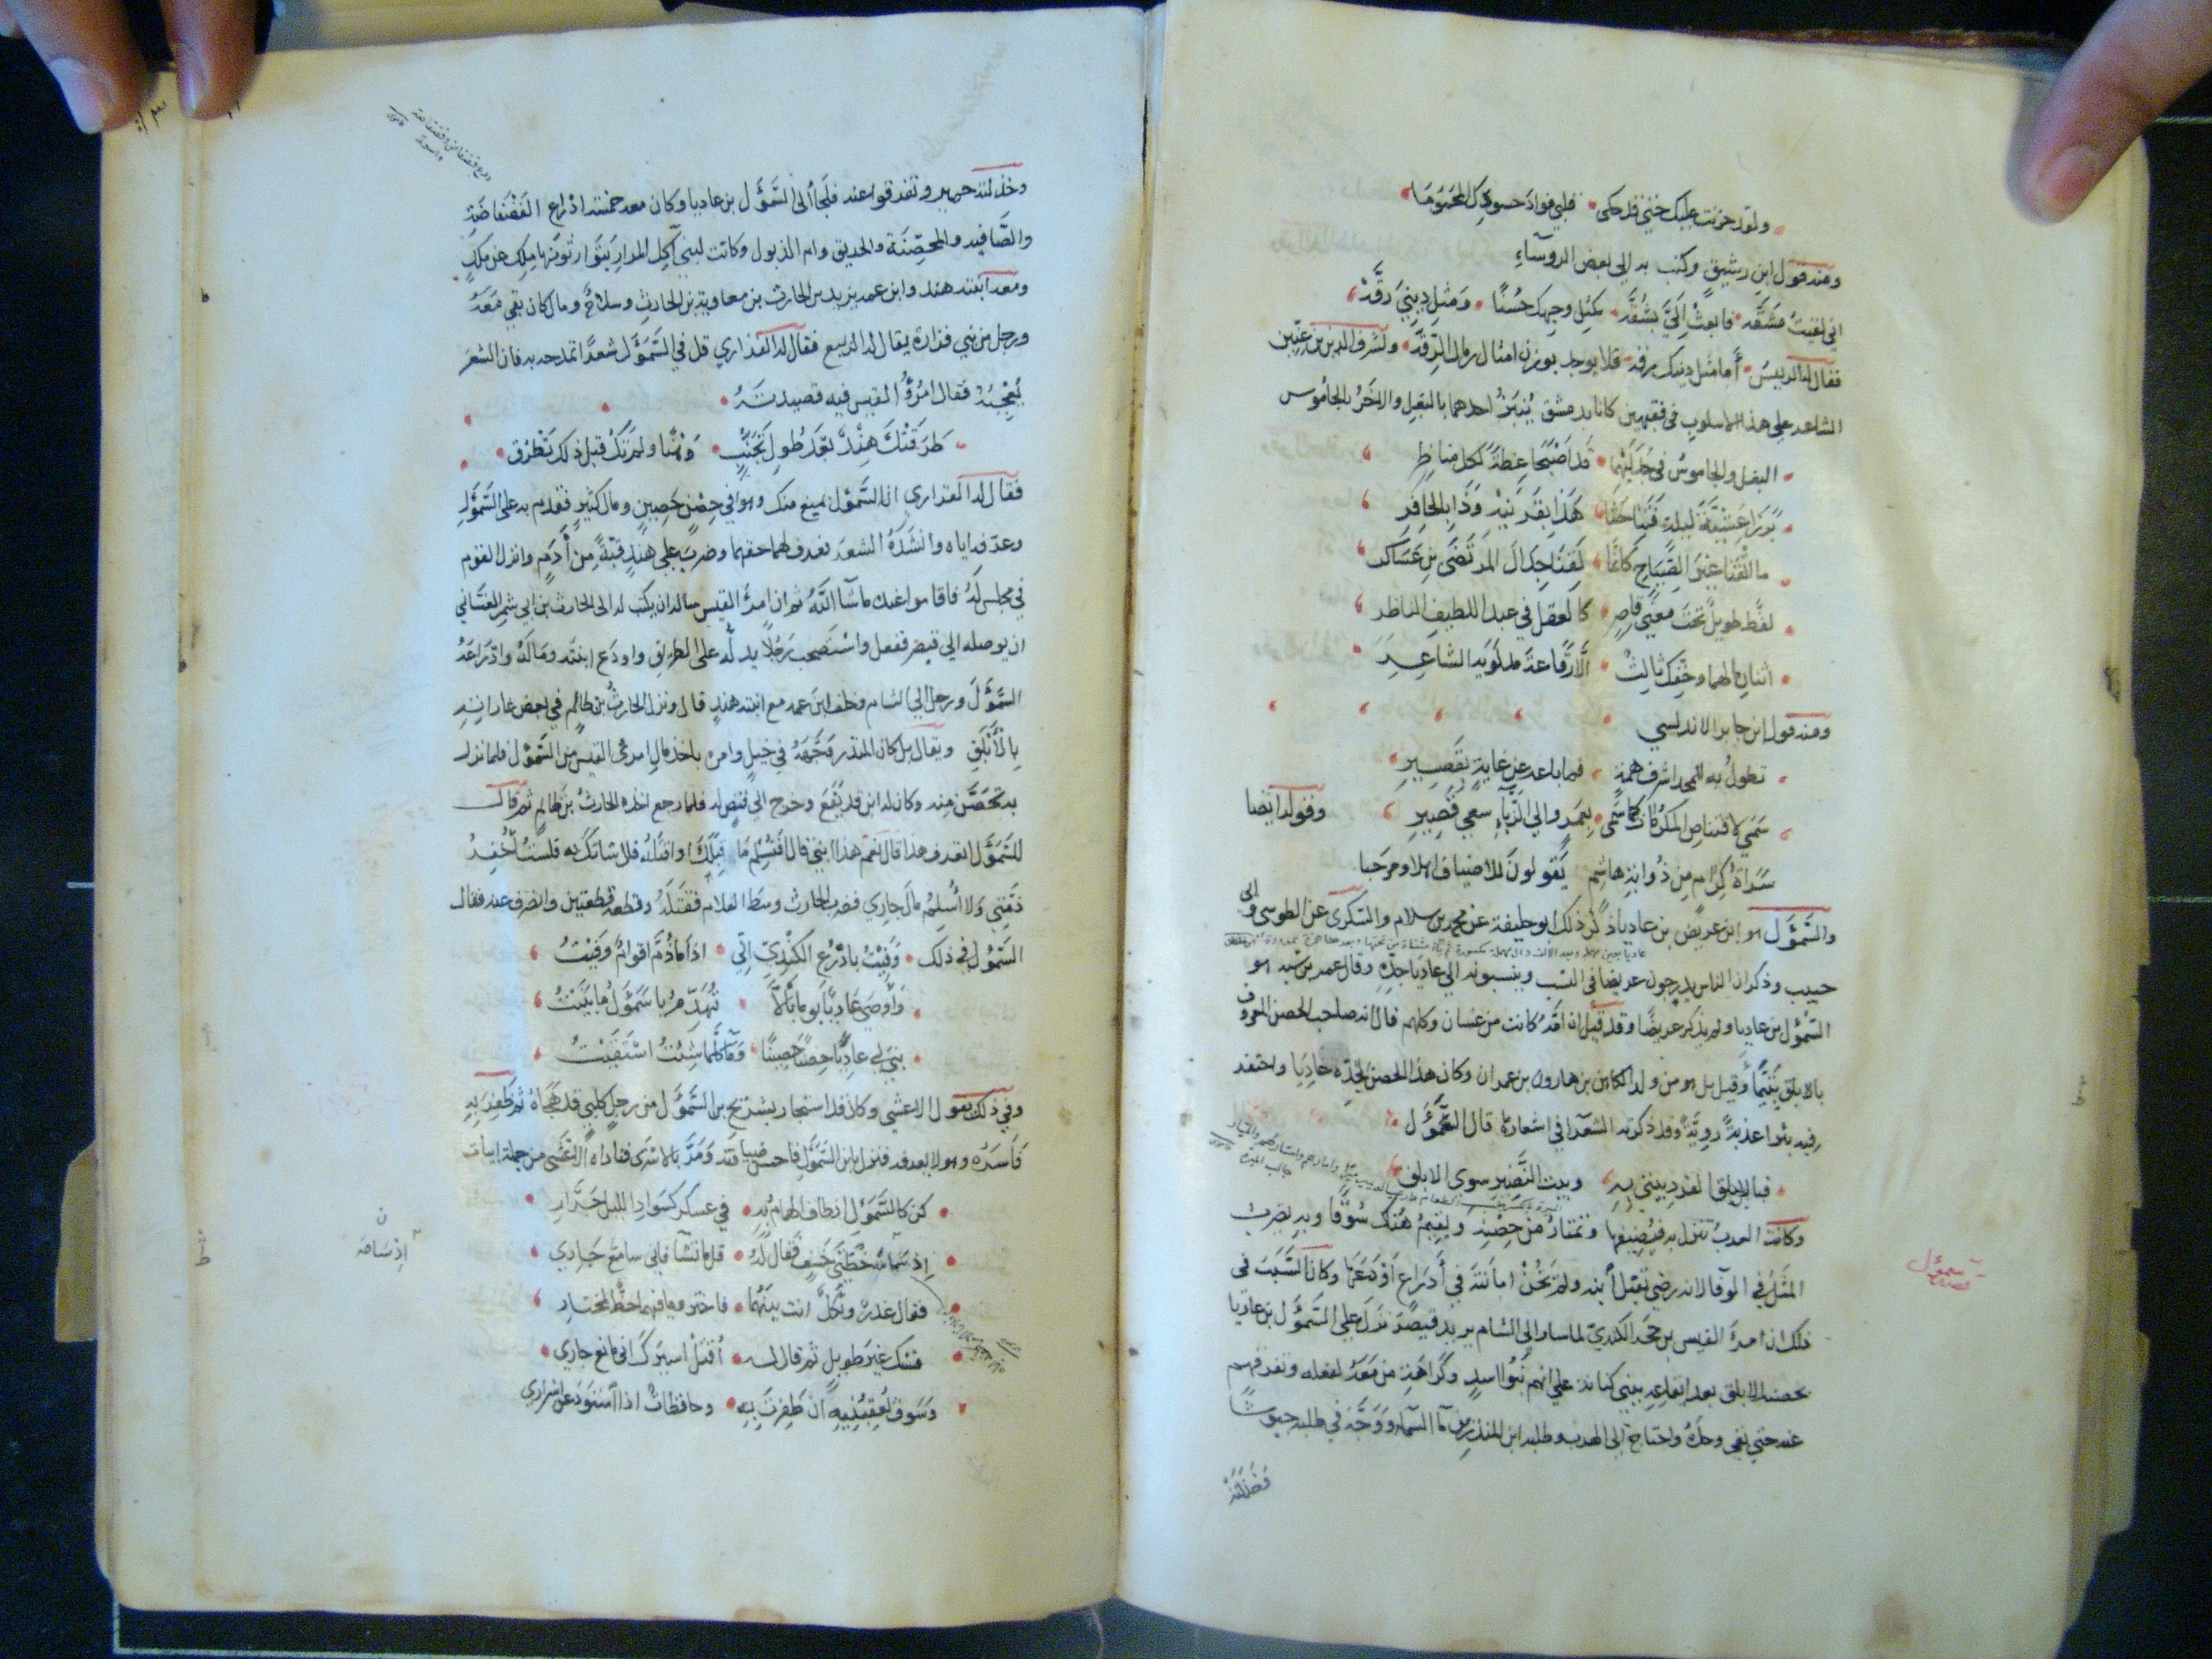 ولقد حزنت عليك حتى قد حكى قلبي فؤاد حسودك المحموما
ومنه قول ابن رشيق وكتب به الى بعض الروساء
اني لقيت مشقه فابعث الي بشقه كمثل وجهك حسنا ومثل ديني رقه
فقال له الرييس أما مثل دينك رقة فلا يوجد بوزن امثال رمال الرقة ولشرف الدين بن عنين
الشاعر على هذا الاسلوب في فقيهين كانا بدمشق ينبز احدهما بالبغل والاخر بالجاموس
البغل والجاموس في جدليهما قد اصبحا عظة لكل مناظر
برزا عشية ليلة فتباحثا هذا بقرنيه وذا بالحافر
ما اتقنا غير الصياح كانما لقنا جدال المرتضى بن عساكر
لفظ طويل تحت معنى قاصر كالعقل في عبد اللطيف الناظر
اثنان مالهما وحقك ثالث الا رقاعة مدلويه الشاعر
ومنه قول ابن جابر الاندلسي
تطول به للمجد اشرف همة فما باعه عن غاية بقصير
سمي لاقتناص المكرمات كما سمى بعمرو الى الزباء سعي قصير وقوله ايضا
سراة كرام من ذوابة هاشم يقولون للاضياف اهلا ومرحبا
والسمول هو ابن عريض بن عاديا ذكر ذلك ابو خليفة عن محمد بن سلام والسكرى عن الطوسي وابي
حبيب وذكر ان الناس يدرجون عريضا في النسب وينسبونه الى عاديا جده وقال عمر بن شبه هو
السمول بن عاديا ولم يذكر عريضا وقد قيل ان امه كانت من غسان وكلهم قال انه صاحب الحصن المعروف
بالابلق بتيما وقيل بل هو من ولد الكاهن بن هارون بن عمران وكان هذا الحصن لجده عاديا واحتفر
فيه بئرا عذبة روية وقد ذكرته الشعرا في اشعارها قال السمول
فبالابلق الفرد بيتي به وبيت النضير سوى الابلق
وكانت العرب تنزل به فيضيفها وتمتار من حصنه ويقيم هناك سوقا وبه يضرب
المثل في الوفا لانه رضي بقتل ابنه ولم يخن امانته في أدراع اودعها وكان السبب في
ذلك ان امرء القيس بن حجر الكندي لما سار الى الشام يريد قيصر نزل على السمول بن عاديا
بحصنه الابلق بعد ايقاعه ببني كنانة على انهم بنو اسد وكراهة من معه لفعله وتفرقهم
عنه حتى بقي وحده واحتاج الى الهرب وطلبه ابن المنذر بن ما السماء ووجه في طلبه جيوشا
سموئل
وخذلته حمير وتفرقوا عنه فلجأ الى السموأل بن عاديا وكان معه خمسة ادراع الفضفاضة
والصافيه والمحصنة والخريق وام الذيول وكانت لبني آكل المرار يتوارثونها ملك عن ملك
ومعه ابنته هند وابن عمه يزيد بن الحارث بن معاوية بن الحارث وسلاح ومال كان بقي معه
ورجل من بني فزارة يقال له الربيع فقال له الفزاري قل في السموأل شعرا تمدحه به فان الشعر
يعجبه فقال امرؤ القيس فيه قصيدته
طرقتك هند بعد طول تجنب وهنا ولم تك قبل ذلك تطرق
فقال له الفزارى ان السموأل يمنع منك وهو في حصن حصين ومال كثير فقدم به على السموأل
وعرفه اياه وانشده الشعر فعرف لهما حقهما وضرب على هند قبة من أدم وانزل القوم
في مجلس له فاقاموا عنده ما شآ الله ثم ان امرء القيس ساله ان يكتب له الى الحارث بن ابي شمر الغساني
ان يوصله الى قيصر ففعل واستصحب رجلا يدله على الطريق واودع ابنته وماله وادراعه
السموأل ورحل الى الشام وخلف ابن عمه مع ابنته هند قال ونزل الحارث بن ظالم في بعض غاراته
بالأبلق ويقال بل كان المنذر وجهه في خيل وامره باخذ مال امرئ القيس من السموأل فلما نزل
به تحصن منه وكان له ابن قد يفع وخرج الى قنص له فلما رجع اخذه الحارث بن ظالم ثم قال
للسموأل اتعرف هذا قال نعم هذا ابني قال افتسلم ما قبلك ام اقتله قال شانك به فلست أخفر
ذمتي ولا أسلم مال جاري فضرب الحارث وسط الغلام فقتله وقطعه قطعتين وانصرف عنه فقال
السموأل في ذلك وفيت بادرع الكندي اني اذا ما ذم اقوام وفيت
واوصى عاديا يوما بألا تهدم يا سموأل ما بنيت
بنى لي عاديا حصنا حصينا وماء كلما شئت استقيت
وفي ذلك يقول الاعشى وكان قد استجار بشريح بن السموأل من رجل كلبي قد هجاه ثم ظفر به
فأسره وهو لا يعرفه فنزل بابن السموأل فاحسن ضيافته ومر بالاسرى فناداه الاعشى من جملة ابيات
كن كالسموأل اذ طاف الهمام به في عسكر كسواد الليل جرار
إذ سامه خطتي خسف فقال له قل ما تشآ فاني سامع حاري
فقال غدر وثكل انت بينهما فاختر وما فيهما حظ لمختار
فشك غير طويل ثم قال له أقتل اسيرك اني مانع جاري
وسوف يعقبنيه ان ظفرت به وحافظات اذا استودعن اسراري
ن
إذ سامه